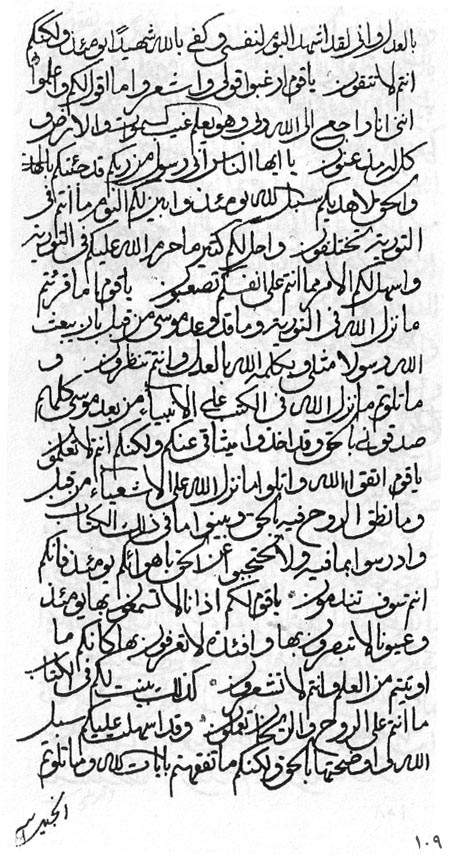 بالعدل وانی لقد اشهد الیوم لنفسی و کفی بالله شهیدا یومئذ ولکنکم
انتم لاتتقون یاقوم ارغبوا قولی واشعروا ما اقول لکم واعلموا
اننی انا راجع الی الله ربی وهو یعلم غیب السموات والارض و
کل له مذعنون یا ایها الناس انی رسول من ربکم قد جئتکم
والحق لاهدیکم سبیل الله یومئذ وابین لکم الیوم ما انتم فی
التوریة تختلفون واحل لکم کثیر ما حرم الله علیکم فی التوریة
واسهل لکم الامر مما انتم علی انفسکم تصعبون یاقوم اما قرئتم
ما نزل الله فی التوریة وما قد وعد موسی من قبل بان یبعث
الله رسولا مثلی ویکلمه الله بالعدل وانتم تنظرون و
ما تلوتم ما نزل الله فی الکتب علی الانبیاء من بعد موسی کلهم
صدقونی بالحق وقد اخذوا میثاقی عنکم ولکنکم انتم لاتعلمون
یاقوم اتقوا الله واتلوا ما نزل الله علی الاشعیاء من قبل
وما نطق الروح فیه بالحق وبینوا ما فی ذلک الکتاب
وادرسوا بما فیه ولا تحتجبوا عن الحق باهوائکم یومئذ فانکم
انتم سوف تندمون یاقوم لکم اذانا لاتسمعون بها یومئذ
وعیونا لاتبصرون بها وافئدة لاتعرفون بها کانکم ما
اوتیتم من العلم وانتم لاتشعرون کذلک بینت لکم فی الکتاب
ما انتم علی الروح تفعلون وقد اسهلت علیکم سبیل
الله واوضحتها بالحق ولکنکم ما تفقهتم بایات الله وما تلوتم
الانجیل
۱۰۹